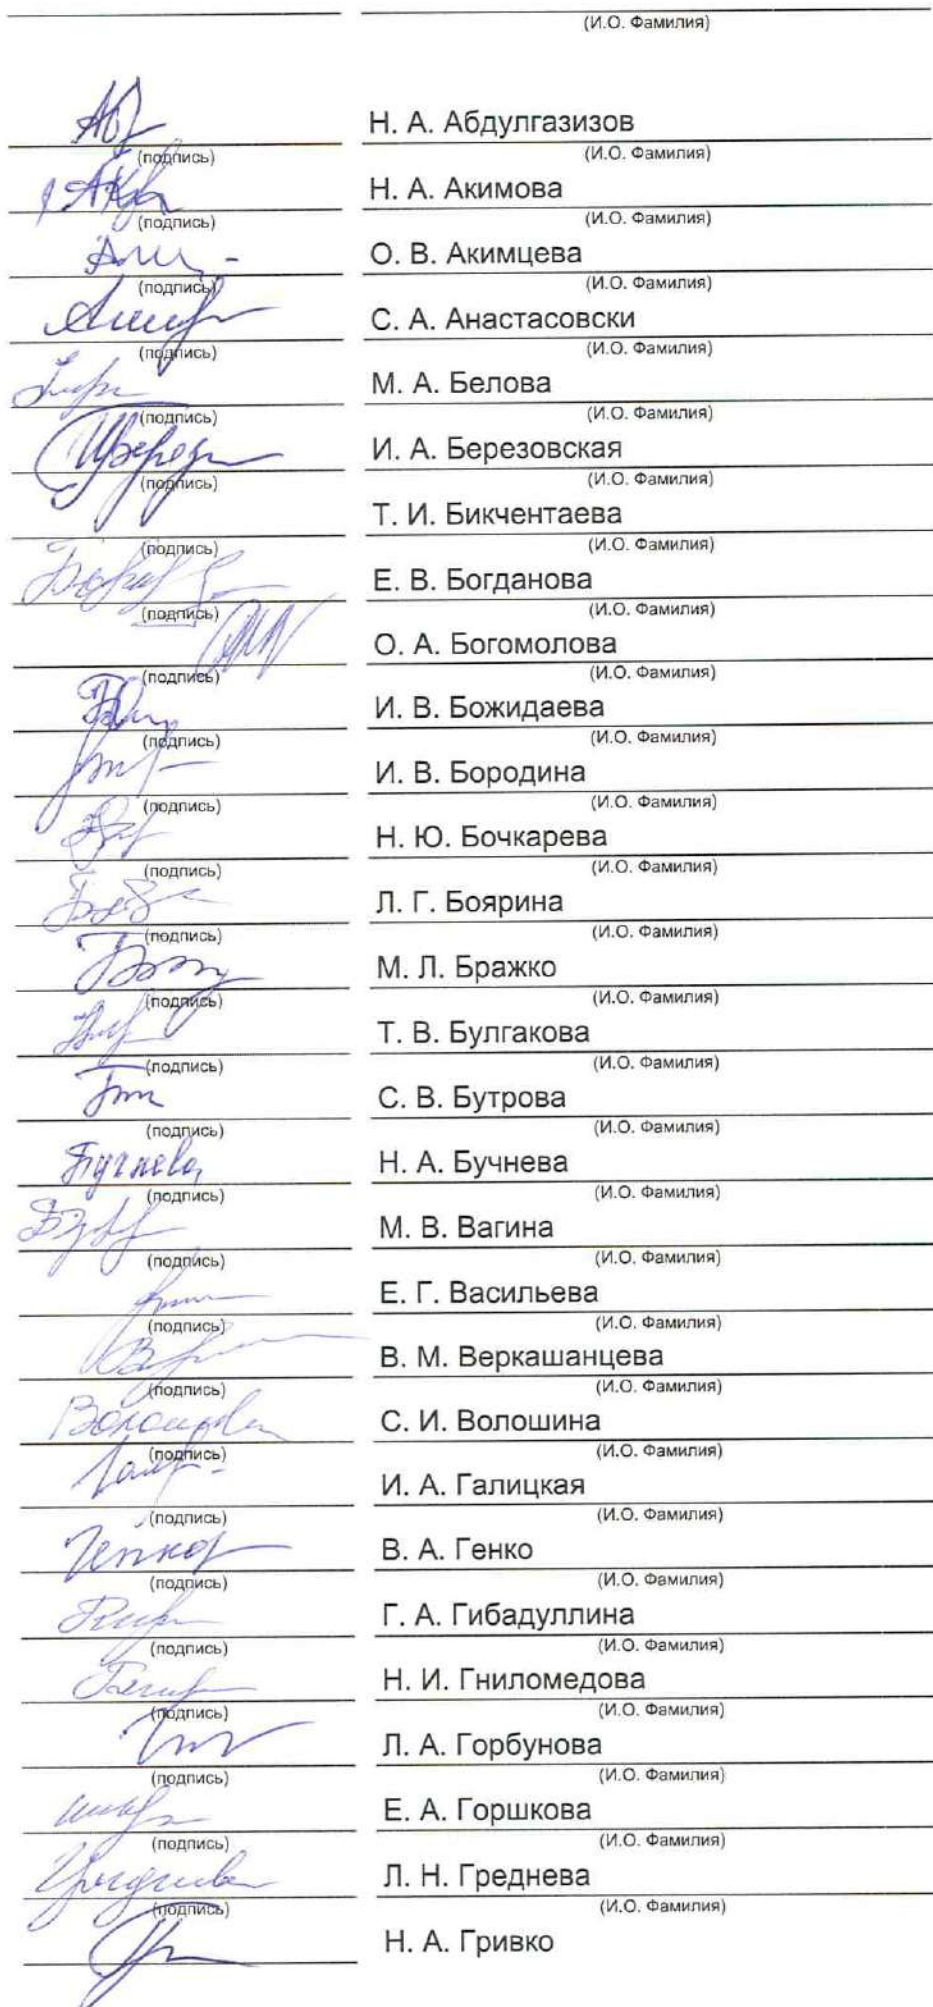 (И.О. Фамилия)
Н. А. Абдулгазизов
(подпись) (И.О. Фамилия)
Н. А. Акимова
(подпись) (И.О. Фамилия)
О. В. Акимцева
(подпись) (И.О. Фамилия)
С. А. Анастасовски
(подпись) (И.О. Фамилия)
М. А. Белова
(подпись) (И.О. Фамилия)
И. А. Березовская
(подпись) (И.О. Фамилия)
Т. И. Бикчентаева
(подпись) (И.О. Фамилия)
Е. В. Богданова
(подпись) (И.О. Фамилия)
О. А. Богомолова
(подпись) (И.О. Фамилия)
И. В. Божидаева
(подпись) (И.О. Фамилия)
И. В. Бородина
(подпись) (И.О. Фамилия)
Н. Ю. Бочкарева
(подпись) (И.О. Фамилия)
Л. Г. Боярина
(подпись) (И.О. Фамилия)
М. Л. Бражко
(подпись) (И.О. Фамилия)
Т. В. Булгакова
(подпись) (И.О. Фамилия)
С. В. Бутрова
(подпись) (И.О. Фамилия)
Бучнева Н. А. Бучнева
(подпись) (И.О. Фамилия)
М. В. Вагина
(подпись) (И.О. Фамилия)
Е. Г. Васильева
(подпись) (И.О. Фамилия)
В. М. Веркашанцева
(подпись) (И.О. Фамилия)
С. И. Волошина
(подпись) (И.О. Фамилия)
И. А. Галицкая
(подпись) (И.О. Фамилия)
В. А. Генко
(подпись) (И.О. Фамилия)
Г. А. Гибадуллина
(подпись) (И.О. Фамилия)
Н. И. Гниломедова
(подпись) (И.О. Фамилия)
Л. А. Горбунова
(подпись) (И.О. Фамилия)
Е. А. Горшкова
(подпись) (И.О. Фамилия)
Л. Н. Греднева
(подпись) (И.О. Фамилия)
Н. А. Гривко